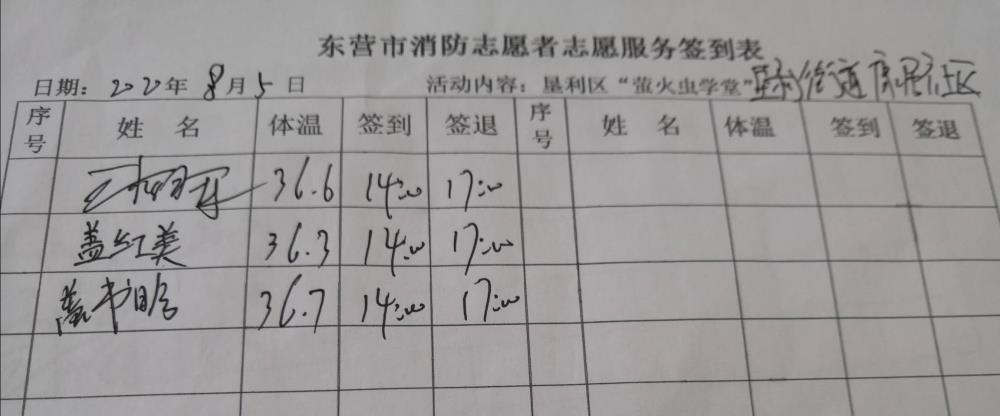 东营市消防志愿者志愿服务签到表
日期：2020年8月5日 活动内容：垦利区“萤火虫学堂”垦利街道康居社区
序号 姓名 体温 签到 签退 序号 姓名 体温 签到 签退
36.6 14:00 17:00
盖红美 36.3 14:00 17:00
盖书晗 36.7 14:00 17:00